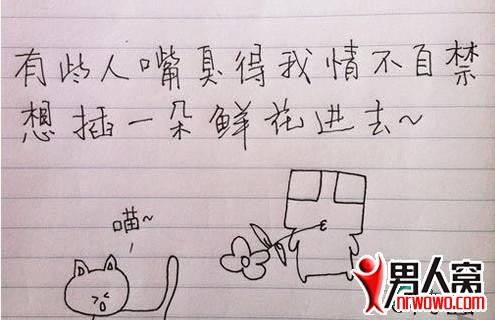 有些人嘴臭得我情不自禁
想插一朵鲜花进去~
喵~
男人窝
nrwowo.com